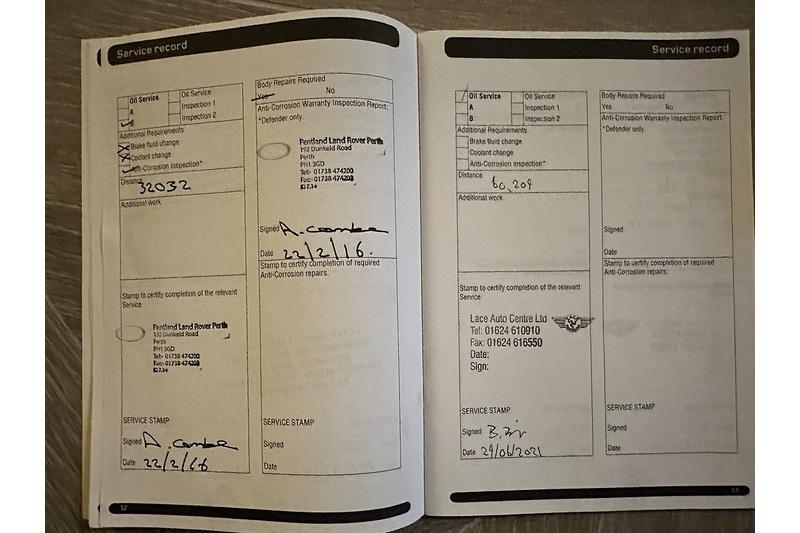 Service record
Oil Service
Oil Service
A
Inspection 1
B
Inspection 2
Additional Requirements
Brake fluid change
Coolant change
Anti-Corrosion Inspection*
Distance
32032
Additional work
Stamp to certify completion of the relevant
Service
Pentland Land Rover Perth
192 Dunkeld Road
Perth
PH1 3GD
Tel:- 01738 474200
Fax:- 01738 474203
SERVICE STAMP
Signed A. Coombe
Date 22/2/16
Body Repairs Required
Yes No
Anti-Corrosion Warranty Inspection Report:
*Defender only.
Pentland Land Rover Perth
192 Dunkeld Road
Perth
PH1 3GD
Tel:- 01738 474200
Fax:- 01738 474203
Signed A. Coombe
Date 22/2/16.
Stamp to certify completion of required
Anti-Corrosion repairs.
SERVICE STAMP
Signed
Date
12
Service record
Oil Service
Oil Service
A
Inspection 1
B
Inspection 2
Additional Requirements
Brake fluid change
Coolant change
Anti-Corrosion Inspection*
Distance
60,209
Additional work
Stamp to certify completion of the relevant
Service
Lace Auto Centre Ltd
Tel: 01624 610910
Fax: 01624 616550
Date:
Sign:
SERVICE STAMP
Signed
Date 29/06/2021
Body Repairs Required
Yes No
Anti-Corrosion Warranty Inspection Report:
*Defender only.
Signed
Date
Stamp to certify completion of required
Anti-Corrosion repairs.
SERVICE STAMP
Signed
Date
13